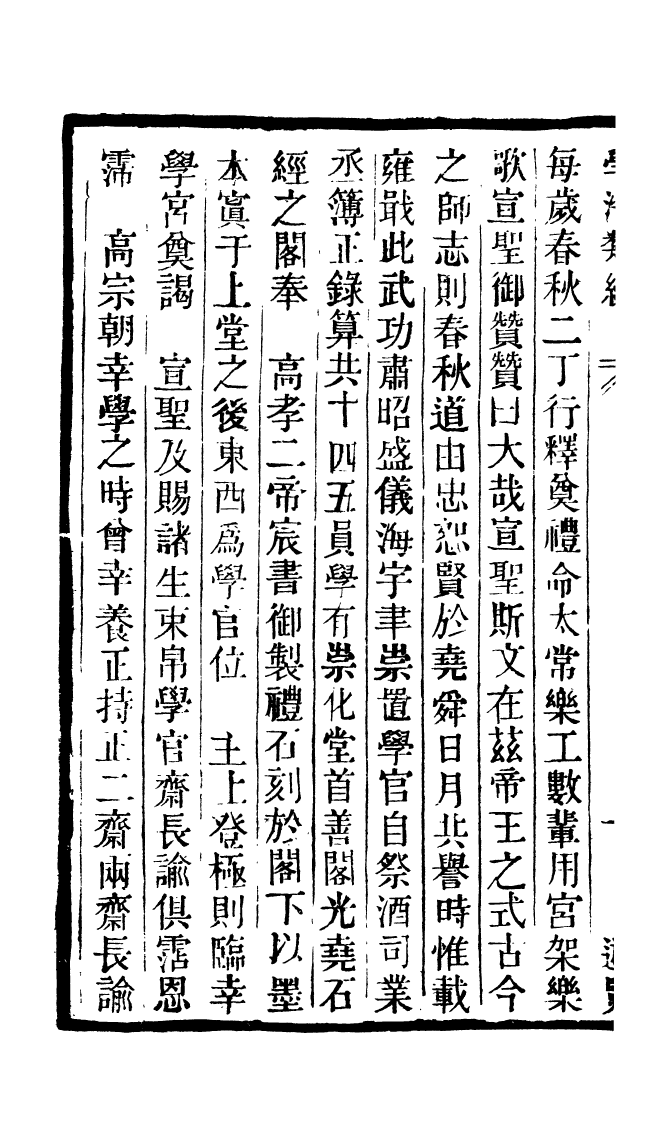 學海類編
每歲春秋二丁行釋奠禮命太常樂工數輩用宮架樂
歌宣聖御贊贊曰大哉宣聖斯文在茲帝王之式古今
之師志則春秋道由忠恕賢於堯舜日月共譽時惟載
雍戢此武功肅昭盛儀海宇聿崇置學官自祭酒司業
丞簿正錄算共十四五員學有崇化堂首善閣光堯石
經之閣奉　高孝二帝宸書御製禮石刻於閣下以墨
本寘于上堂之後東西爲學官位　主上登極則臨幸
學宮奠謁　宣聖及賜諸生束帛學官齋長諭俱霑恩
霈　高宗朝幸學之時曾幸養正持正二齋兩齋長諭